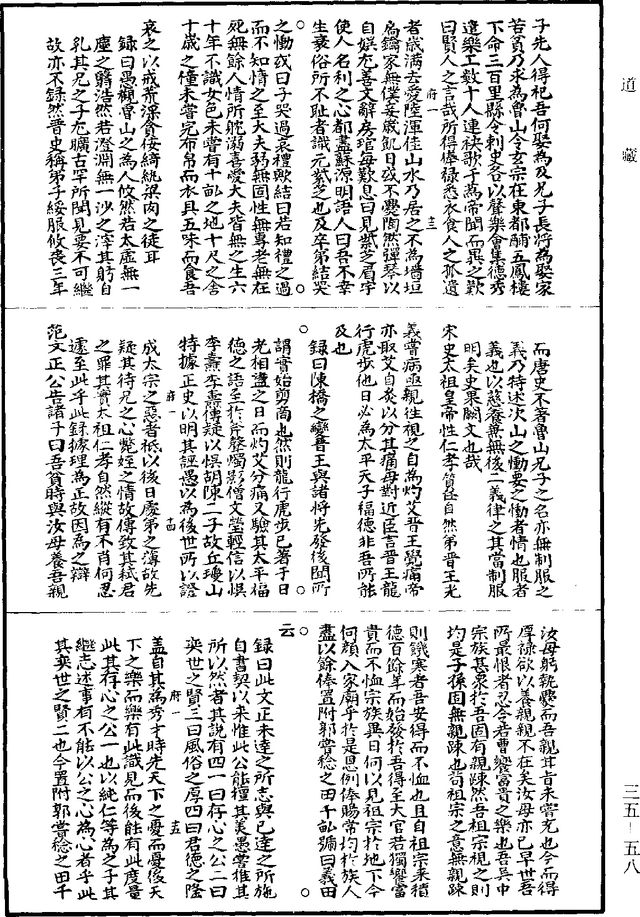 道藏
子先人得祀吾何娶為及兄子長將為娶家
苦貧乃求為魯山令玄宗在東都酺五鳳樓
下命三百里縣令刺史各以聲樂會集德秀
遣樂工數十人連袂歌于為帝聞而異之歎
曰賢人之言哉所得俸祿悉衣食人之孤遺
府一 十三
者歲滿去愛陸渾佳山水乃居之不為墻垣
扃鑰家無僕妾歲飢日或不爨陶然彈琴以
自娛尤善文辭房琯每歎息曰見紫芝眉宇
使人名利之心都盡蘇源明語人曰吾不幸
生衰俗所不耻者識元紫芝也及卒弟結哭
之慟或曰子哭過哀禮歟結曰若知禮之過
而不知情之至大夫弱無固性無專老無在
死無餘人情所躭溺喜愛大夫皆無之生六
十年不識女色未嘗有十畝之地十尺之舍
十歲之僮未嘗完布帛而衣具五味而食吾
哀之以戒荒淫貪佞綺紈粱肉之徒耳
錄曰愚觀魯山之為人攸然若太虛無一
塵之翳浩然若澄淵無一沙之滓其躬自
乳其兄之子尤曠古罕所聞見要不可繼
故亦不錄然晉史稱弟子綏服攸喪三年
而唐史不著魯山兄子之名亦無制服之
義乃特述次山之慟要之慟者情也服者
義也以慈養兼無後二義律之其當制服
明矣史果闕文也哉
宋史太祖皇帝性仁孝質任自然弟晉王光
義嘗病亟親往視之自為灼艾晉王覺痛帝
亦取艾自灸以分其痛每對近臣言晉王龍
行虎步他日必為太平天子福德非吾所能
及也
錄曰陳橋之變晉王與諸將先發後聞所
謂實始翦商也然則龍行虎步已著于日
光相盪之日而灼艾分痛又驗其太平福
德之語至於斧聲燭影僧文瑩輕信以悞
李燾李燾傳疑以悞胡陳二子故丘瓊山
特據正史以明其誣愚以為後世所以證
府一 十四
成太宗之惡者祗以後日處弟之薄故先
疑其待兄之心斃姪之情故傳致其弒君
之罪其實太祖仁孝自然縱有不肖何忍
遽至此乎此錄據理為正故因為之辯
范文正公告諸子曰吾貧時與汝母養吾親
汝母躬執爨而吾親甘旨未嘗充也今而得
厚祿欲以養親親不在矣汝母亦已早世吾
所最恨者忍令若曹饗富貴之樂也吾吳中
宗族甚眾於吾固有親踈然吾祖宗視之則
均是子孫固無親踈也苟祖宗之意無親踈
則饑寒者吾安得而不恤也且自祖宗來積
德百餘年而始發於吾得至大官若獨饗富
貴而不恤宗族異日何以見祖宗於地下今
何顏入家廟乎於是恩例俸賜常均於族人
盡以餘俸置附郭嘗稔之田千畝號曰義田
云
錄曰此文正未達之所志與已達之所施
自書契以來惟此公能擅其美愚嘗推其
所以然者其說有四一曰存心之公二曰
奕世之賢三曰風俗之厚四曰君德之隆
府一 十五
蓋自其為秀才時先天下之憂而憂後天
下之樂而樂有此識見而後能有此度量
此其存心之公一也以純仁等為之子其
繼志述事有不能以公之心為心者乎此
其奕世之賢二也今置附郭嘗稔之田千
三五—五八